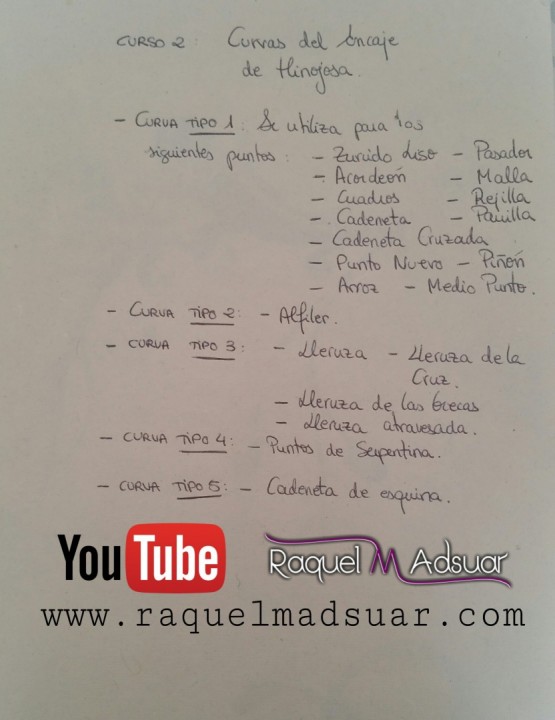 CURSO 2: Curvas del Encaje
de Hinojosa.
- CURVA TIPO 1: Se utiliza para los
siguientes puntos: - Zurcido Liso - Pasador
- Acordeón - Malla
- Cuadros - Rejilla
- Cadeneta - Pauilla
- Cadeneta Cruzada
- Punto Nuevo - Piñón
- Arroz - Medio Punto.
- CURVA TIPO 2: - Alfiler.
- CURVA TIPO 3: - Lleruza - Lleruza de la
Cruz.
- Lleruza de las Grecas
- Lleruza atravesada.
- CURVA TIPO 4: - Puntos de Serpentina.
- CURVA TIPO 5: - Cadeneta de esquina.
YouTube Raquel M Adsuar
www.raquelmadsuar.com